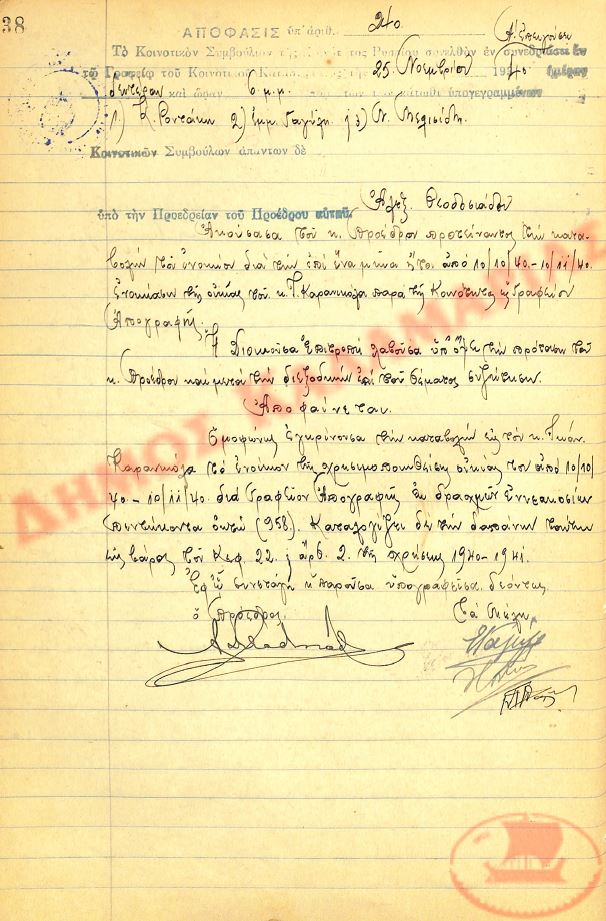 38
ΑΠΟΦΑΣΙΣ ὑπ' ἀριθ. 240
Τὸ Κοινοτικὸν Συμβούλιον τῆς Κοινότητος Ρυσίου συνελθὸν ἐν συνεδριάσει ἐν
τῷ Γραφείῳ τοῦ Κοινοτικοῦ 25 Νοεμβρίου 1940 ἡμέραν
δευτέραν καὶ ὥραν 6 μ.μ. ὑπογεγραμμένων
1) Κ. 2) Ἐμμ. 3) Ν. Μελισίδη
Κοινοτικῶν Συμβούλων ἁπάντων δὲ
ὑπὸ τὴν Προεδρείαν τοῦ Προέδρου αὐτοῦ. Ἀλεξ. Θεοδοσιάδου
Ἀκούσασα τοῦ κ. Προέδρου προτείναντος τὴν κατα-
βολὴν τοῦ ἐνοικίου διὰ τὴν ἐπὶ ἕνα μῆνα ἤτοι ἀπὸ 10/10/40.-10/11/40.
ἐνοικίασιν τῆς οἰκίας τοῦ κ. Γ. Καρανικόλα παρὰ τῆς Κοινότητος ὡς Γραφεῖον
Ἀπογραφῆς.
Ἡ Διοικοῦσα Ἐπιτροπὴ λαβοῦσα ὑπ' ὄψει τὴν πρότασιν τοῦ
κ. Προέδρου καὶ μετὰ τὴν διεξοδικὴν ἐπὶ τοῦ θέματος συζήτησιν.
Ἀποφαίνεται
Ὁμοφώνως ἐγκρίνουσα τὴν καταβολὴν εἰς τὸν κ.
Καρανικόλα τὸ ἐνοίκιον τῆς χρησιμοποιηθείσης οἰκίας του ἀπὸ 10/10/
40.-10/11/40. διὰ Γραφεῖον Ἀπογραφῆς ἐκ δραχμῶν ἐννεακοσίων
πεντήκοντα ὀκτὼ (958). Καταλογίζει δὲ τὴν δαπάνην ταύτην
εἰς βάρος τοῦ Κεφ. 22. ἄρθ. 2. τῆς χρήσεως 1940-1941.
Ἐφ' ᾧ συνετάγη ἡ παροῦσα ὑπογραφεῖσα δεόντως.
ὁ Πρόεδρος Τὰ Μέλη
ΔΗΜΟΣ ΚΑΛΑΜΑΡΙΑΣ